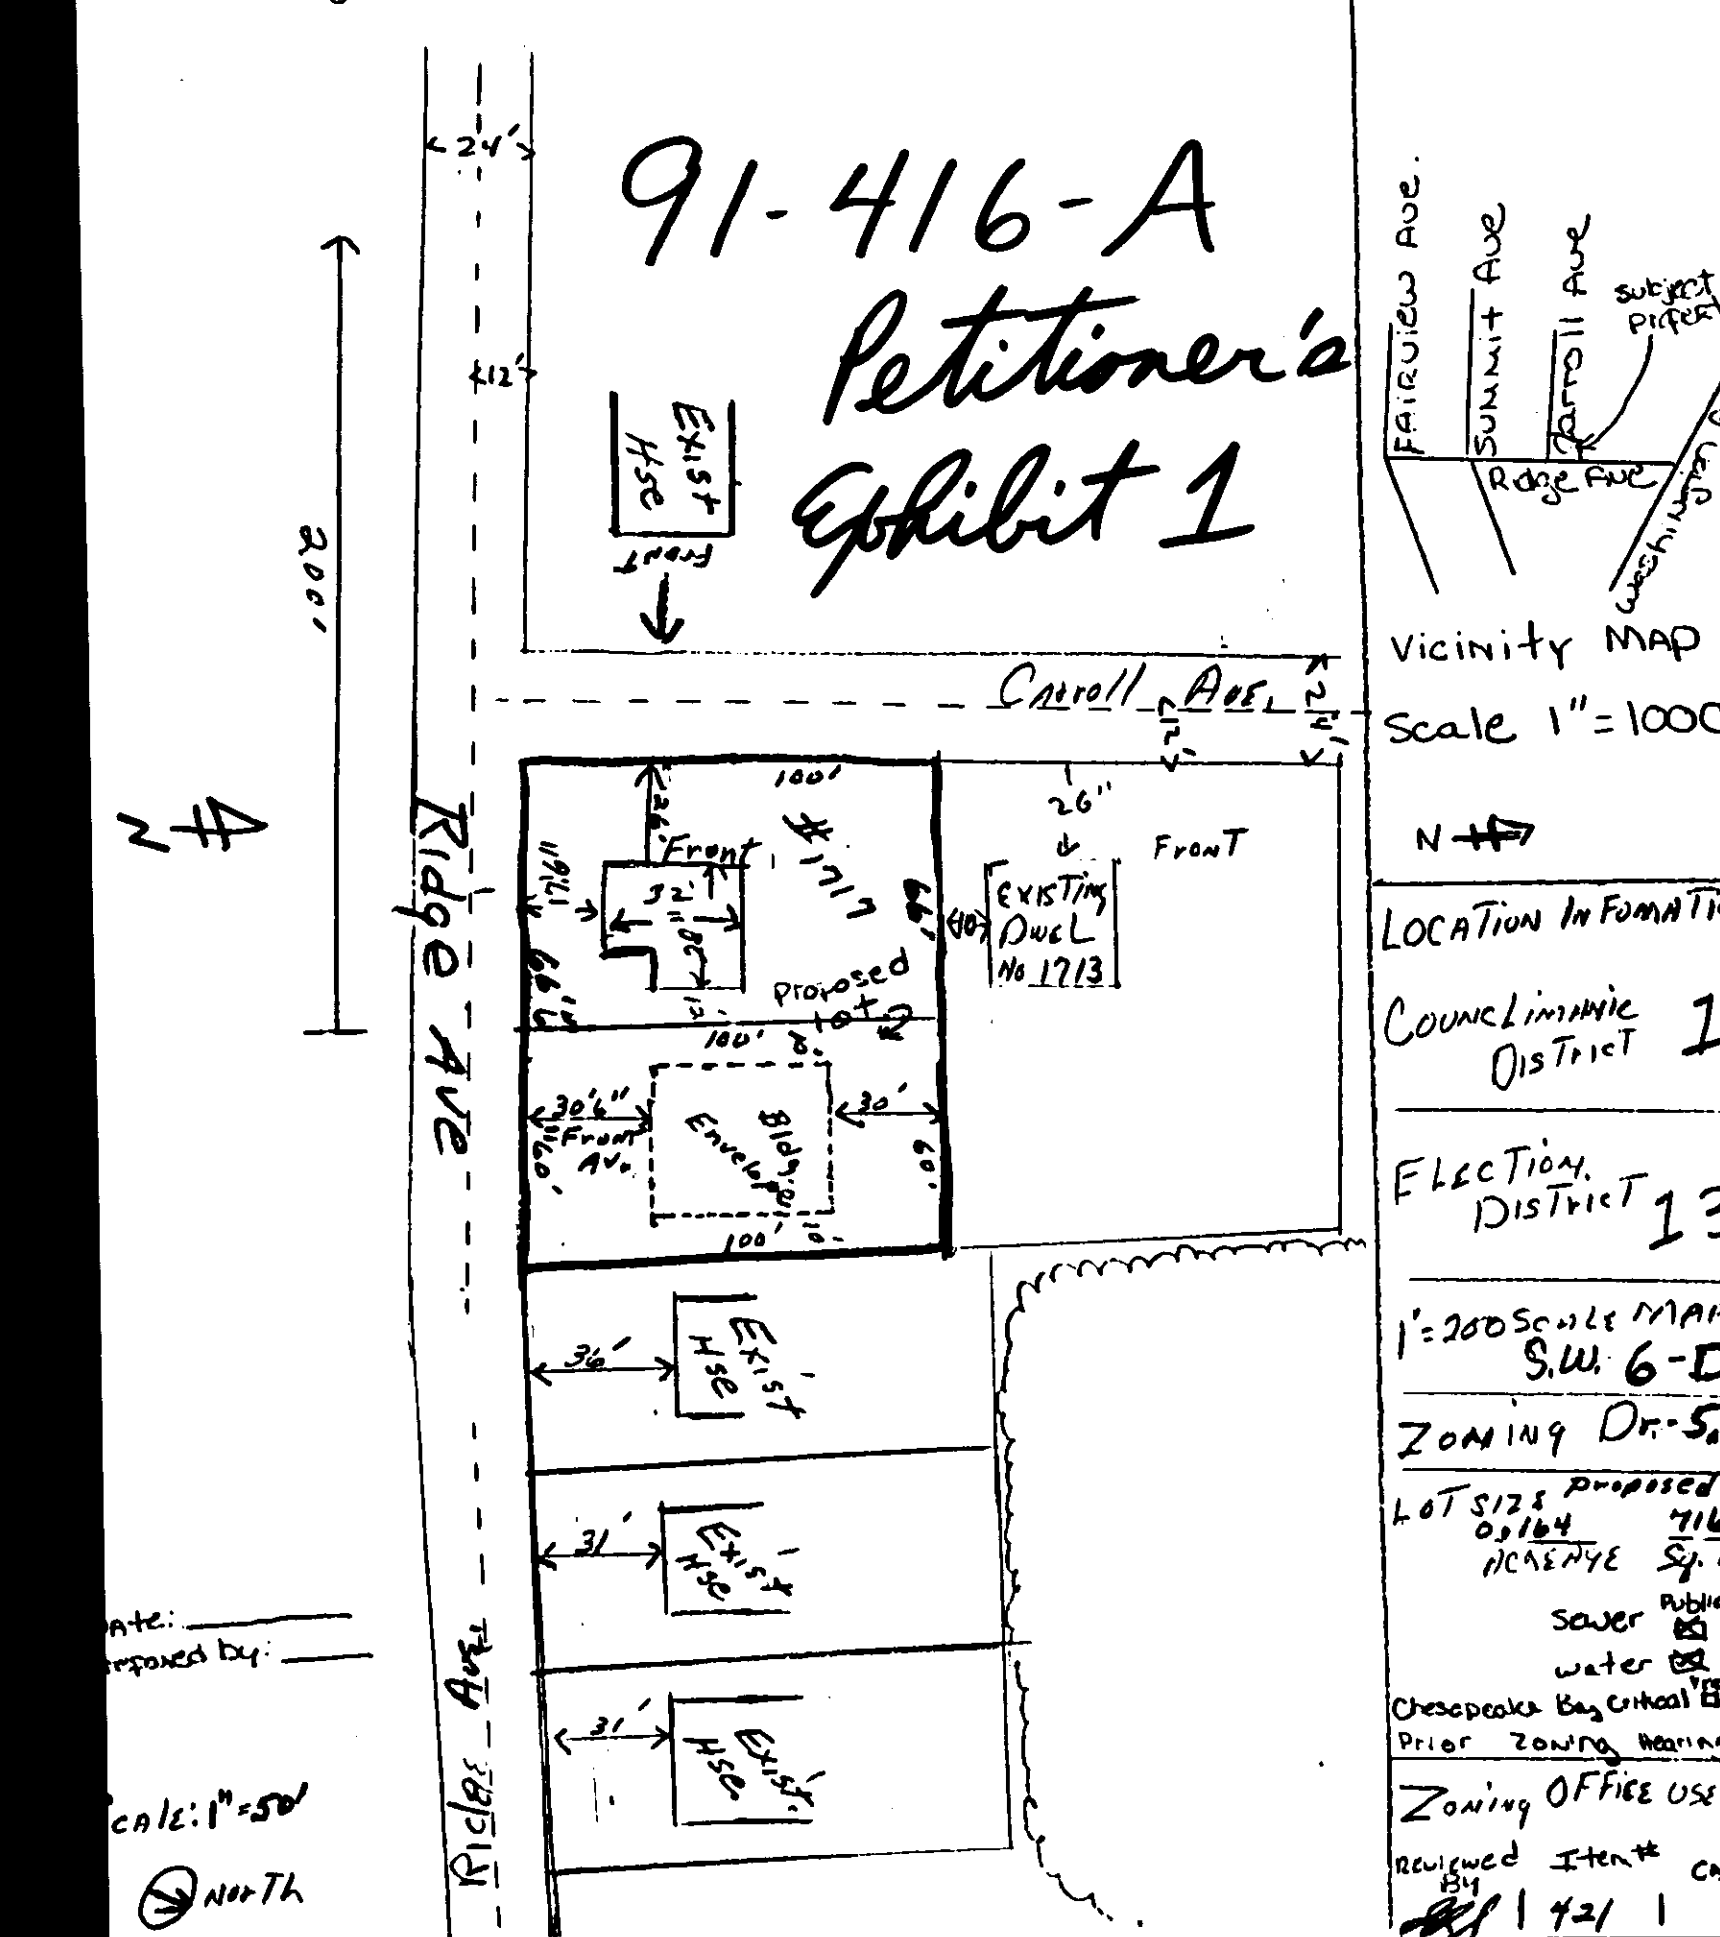 91-416-A
Petitioner's
Exhibit 1
24'
12'
200'
Exist
Hse
Front
Carroll Ave.
24'
12'
N
Ridge Ave
100'
26'
Front
#1717
32'
66'
66'6"
12'
Proposed
Lot
100'
8'
26"
Front
Existing
Dwel
No 1713
10'
30'6"
Front
Av.
Bldg.
Envelope
30'
60'
60'
100'
10'
36'
Exist
Hse
31'
Exist
Hse
31'
Exist.
Hse
Ridge Ave.
ate:
repared by:
cale: 1"=50'
North
Fairview Ave.
Summit Ave
Carroll Ave
subject
Ridge Ave
Vicinity Map
Scale 1"=1000
N
Location Infomatio
Councilmanic
District 1
Election
District 13
1'=200 Scale Map
S.W. 6-D
Zoning Dr.-5.
Lot Size Proposed
0.164 716
Acreage Sq.
Public
sewer
water
Chesapeake Bay Critical
Prior Zoning Hearin
Zoning Office Use
Reviewed Item#
By
421